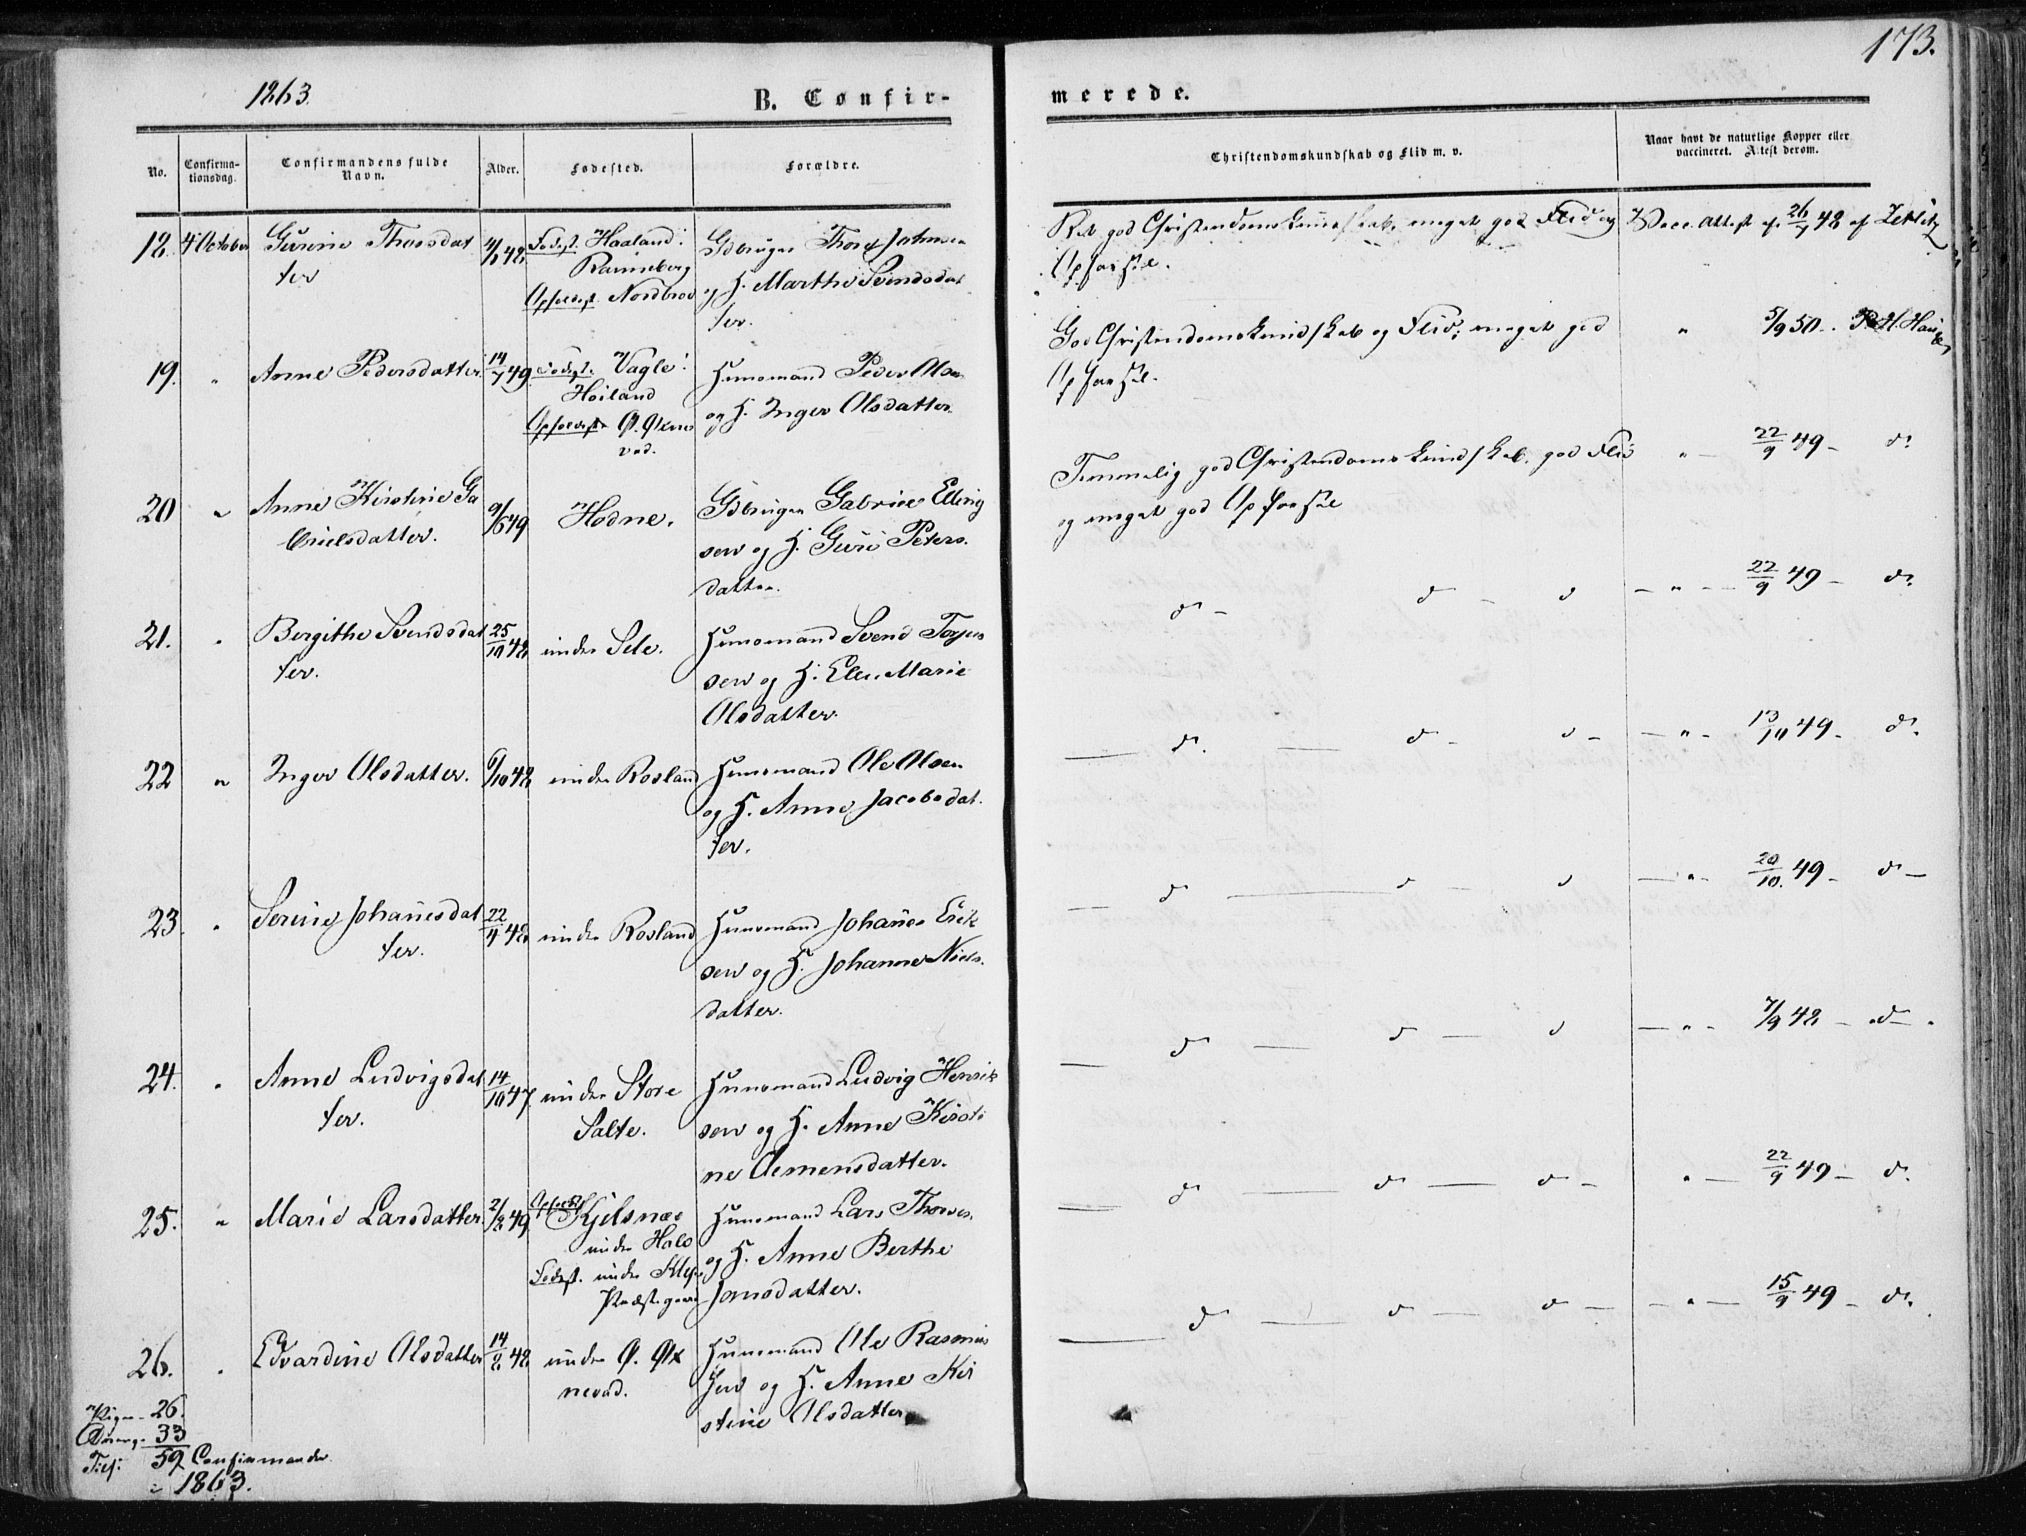 173.
1863.
B. Confir-
merede.
No.
Confirma-
tionsdag.
Confirmandens fulde
Navn.
Alder.
Fødested.
Forældre.
Christendomskundskab og Flid m. v.
Naar havt de naturlige Kopper eller
vaccineret. Attest derom.
18. 4 October Gurine Thorsdat
ter
4/1 48.
Fødest. Haaland:
Ranneberg
Opholdsst. Nordbroe
Gdbruger Thor Johnsen
og H. Marthe Svendsdat
ter.
Ret god Christendomskundskab, meget god Flid og
Opførsel.
Vacc. Attest af 26/7 48 af Zetlitz
19. " Anne Pedersdatter.
14/7 49.
Fødest. Vagle:
Høiland
Opholdsst. Ø. Øxne
vad.
Huusmand Peder Olsen
og H. Inger Olsdatter.
God Christendomskundskab og Flid; meget god
Opførsel.
" 5/9 50.
20 " Anne Kirstine Ga
brielsdatter.
9/6 49
Hodne.
Gdbruger Gabriel Elling
sen og H. Guri Peters.
datter.
Temmelig god Christendomskundskab, god Flid
og meget god Opførsel
" 22/9 49 - do
21. " Bergithe Svendsdat
ter.
25/10 48
under Sele.
Huusmand Svend Torjus
sen og H. Elen Marie
Olsdatter.
do - do - do - " - 22/9 49 - do
22 " Inger Olsdatter.
6/10 48
under Rosland
Huusmand Ole Olsen
og H. Anne Jacobsdat.
ter.
do. do - do - " - 13/10 49 - do
23. " Serine Johanesdat
ter.
22/4 48
under Rosland
Huusmand Johanes Erik
sen og H. Johanne Niels.
datter.
do do - do - " - 20/10. 49 - do -
24. " Anne Ludvigsdat
ter.
14/10 47.
under Store
Salte.
Huusmand Ludvig Henrik
sen og H. Anne Kirsti
ne Clemensdatter.
do - do - do - " - 7/9 48 - do -
25. " Marie Larsdatter
2/2 49
Opholdsst. Kjelsnæs
under Hals
Fødest. under Klep
Præstegaard
Huusmand Lars Thorsen.
og H. Anne Berthe
Jonsdatter.
do - do - do - " - 22/9 49 - do.
26. " Edvardine Olsdatter
14/2 48
under Ø. Øx
nevad.
Huusmand Ole Rasmus
sen og H. Anne Kir
stine Olsdatter
do - do - do - " - 15/9 49 - do.
Piger - 26.
Drenge 33
Tils: 59 Confirmander
i 1863.